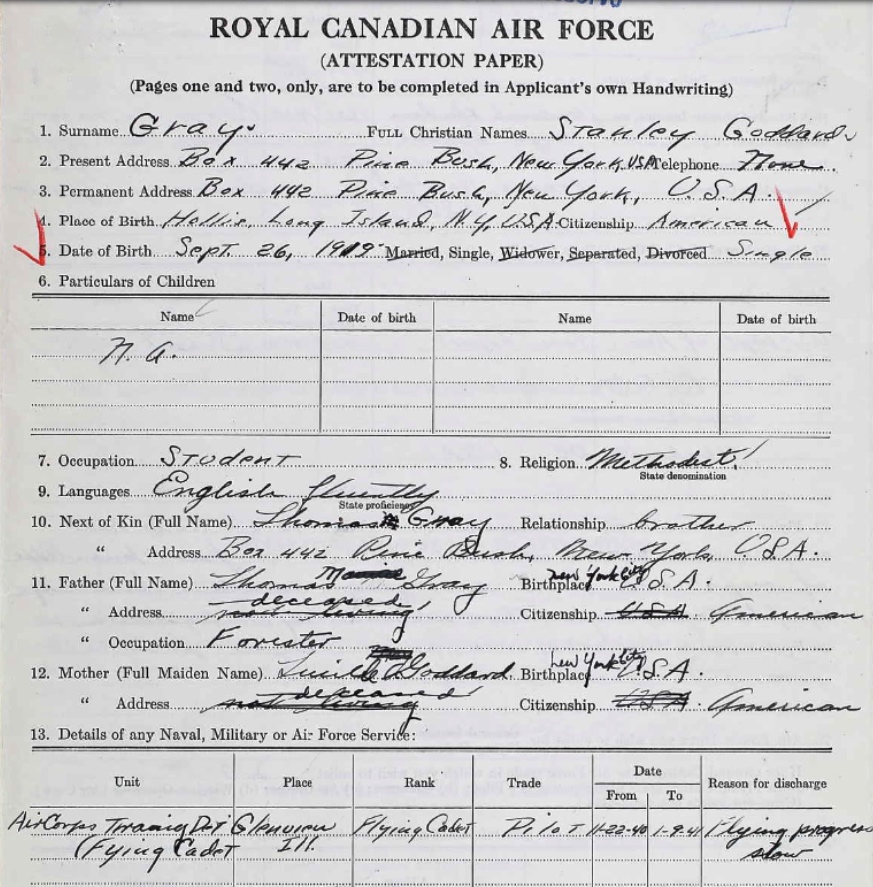 ROYAL CANADIAN AIR FORCE
(ATTESTATION PAPER)
(Pages one and two, only, are to be completed in Applicant's own Handwriting)
1. Surname Gray. FULL Christian Names Stanley Goddard
2. Present Address Box 442 Pine Bush, New York, USA Telephone None
3. Permanent Address Box 442 Pine Bush, New York, U.S.A.
4. Place of Birth Hollis, Long Island, N.Y, U.S.A. Citizenship American
5. Date of Birth Sept. 26, 1919 Married, Single, Widower, Separated, Divorced Single
6. Particulars of Children
Name Date of birth Name Date of birth
N.A.
7. Occupation Student 8. Religion Methodist
State denomination
9. Languages English fluently
State proficiency
10. Next of Kin (Full Name) Thomas Gray Relationship brother
" Address Box 442 Pine Bush, New York, U.S.A.
11. Father (Full Name) Thomas Gray Birthplace New York City U.S.A.
" Address not living deceased Citizenship USA American
" Occupation Forester
12. Mother (Full Maiden Name) Lucille Goddard Birthplace New York City U.S.A.
" Address not living deceased Citizenship USA American
13. Details of any Naval, Military or Air Force Service:
Unit Place Rank Trade Date Reason for discharge
From To
Air Corps Training Det Glenview Flying Cadet Pilot 11-22-40 1-9-41 Flying progress
(Flying Cadet Ill. slow